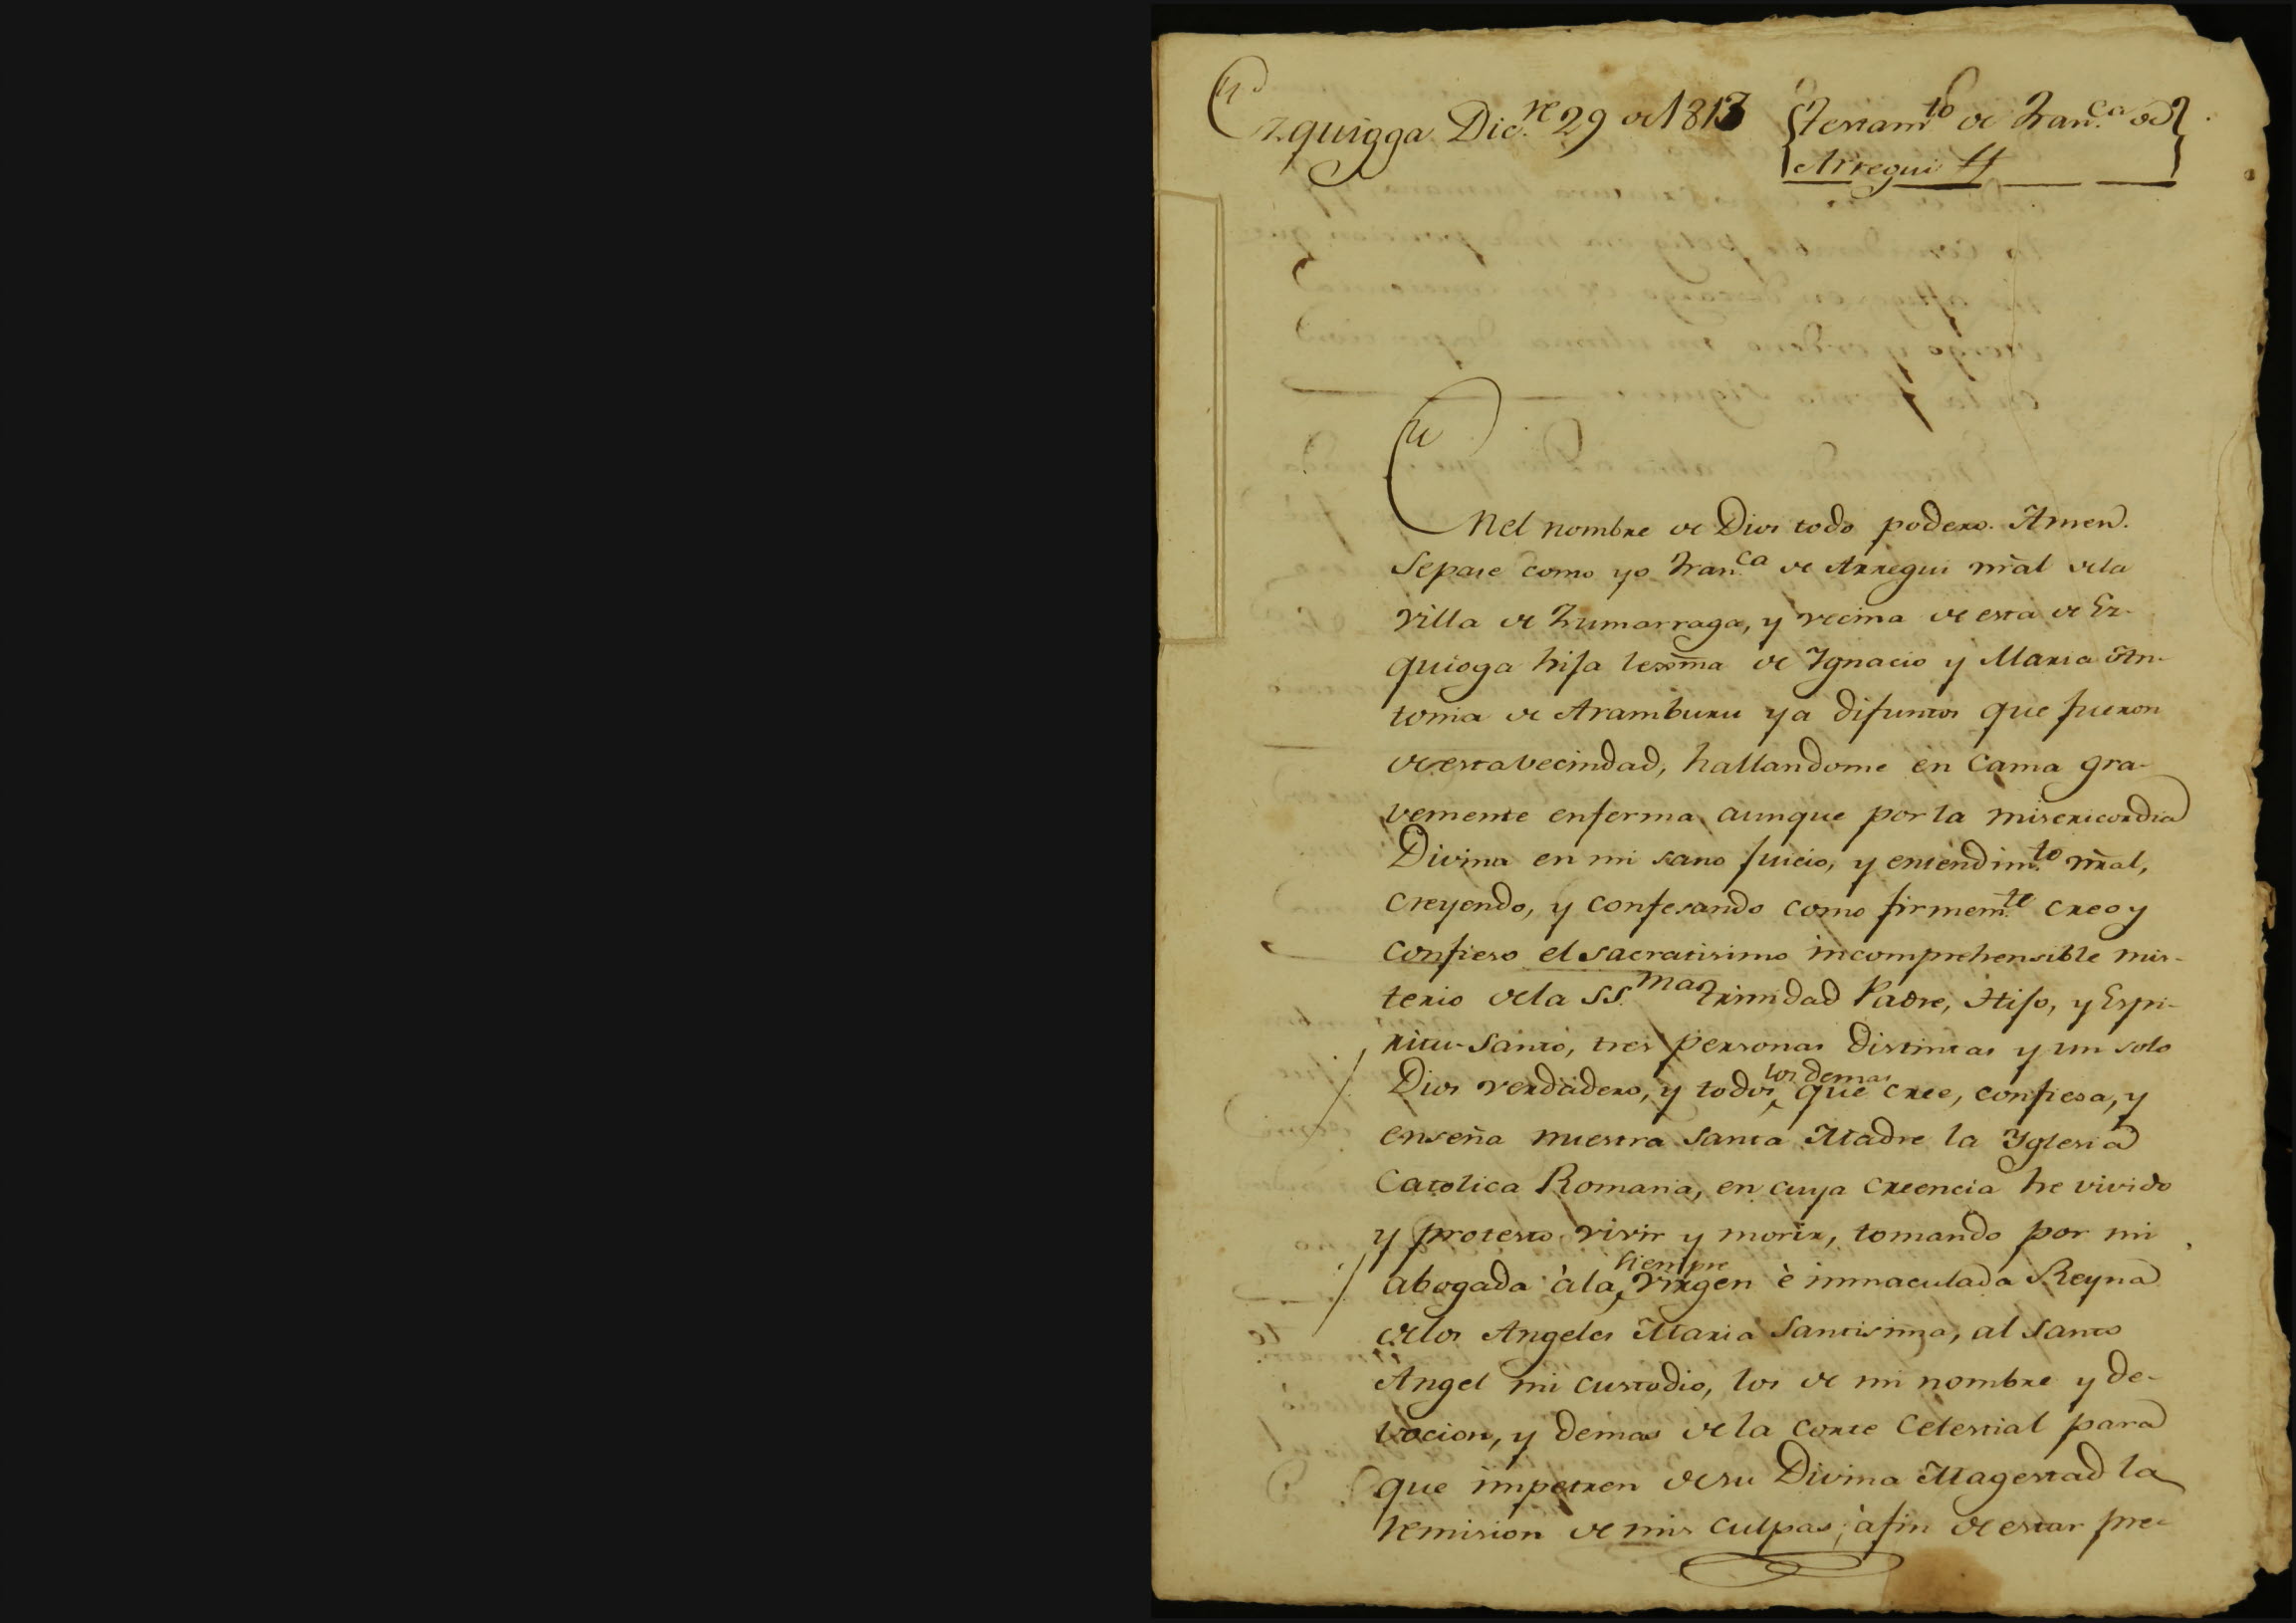 Ezquioga Dic.re 29 de 1813
Testam.to de Fran.ca de
Arregui
En el nombre de Dios todo podero. Amen.
Sepase como yo Fran.ca de Arregui nral dela
villa de Zumarraga, y vecina de esta de Ez-
quioga hija lexma de Ignacio y Maria An-
tonia de Aramburu ya difuntos que fueron
de esta vecindad, hallandome en cama gra-
vemente enferma, aunque por la misericordia
Divina en mi sano juicio, y entendim.to nral,
creyendo, y confesando como firmem.te creo y
confieso el sacratisimo incomprehensible mis-
terio dela SS.ma trinidad Padre, Hijo, y Espi-
ritu-Santo, tres personas distintas y un solo
Dios verdadero, y todos los demas que cree, confiesa, y
enseña nuestra Santa Madre la Yglesia
Catolica Romana, en cuya creencia he vivido
y protesto vivir y morir, tomando por mi
abogada à la siempre virgen è inmaculada Reyna
delos Angeles Maria Santisima, al Santo
Angel mi custodio, los de mi nombre y de-
vocion, y demas de la corte Celestial para
que impetren desu Divina Magestad la
remision de mis culpas, à fin de estar pre-